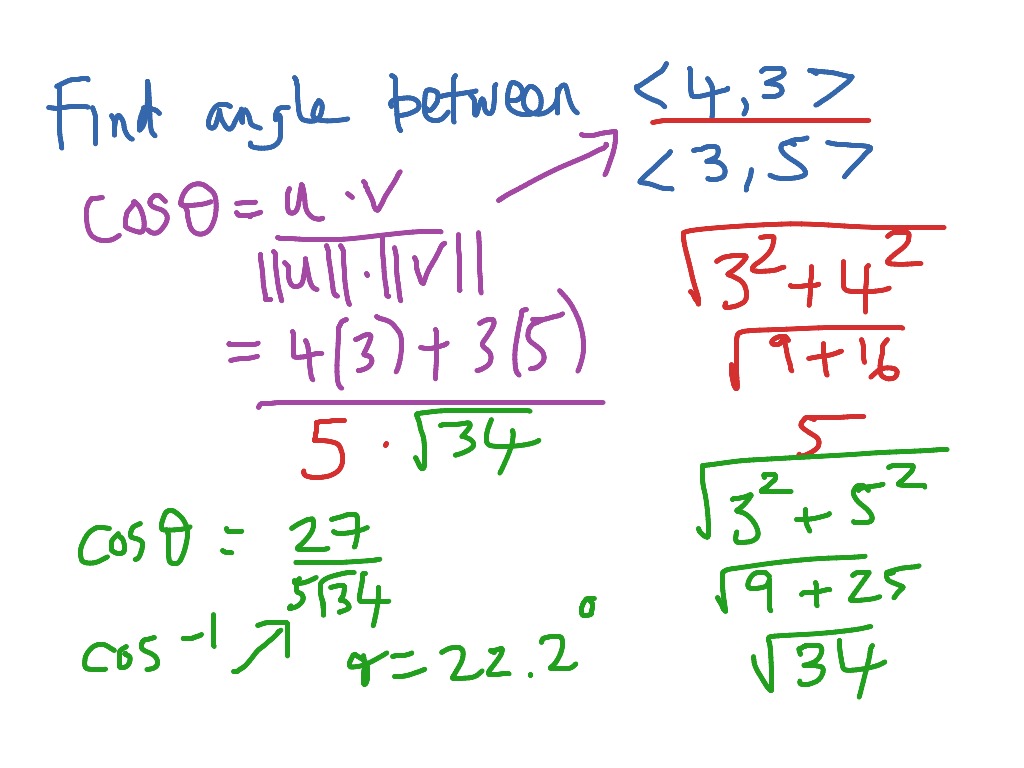 Find angle between <4,3>
<3,5>
cosθ = u · v
||u|| · ||v||
= 4(3) + 3(5)
5 · √34
cosθ = 27
5√34
cos⁻¹ ↗ = 22.2°
√3² + 4²
√9 + 16
5
√3² + 5²
√9 + 25
√34